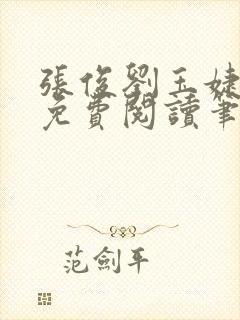 張俊劉玉婕
免費閱讀筆
范劍平